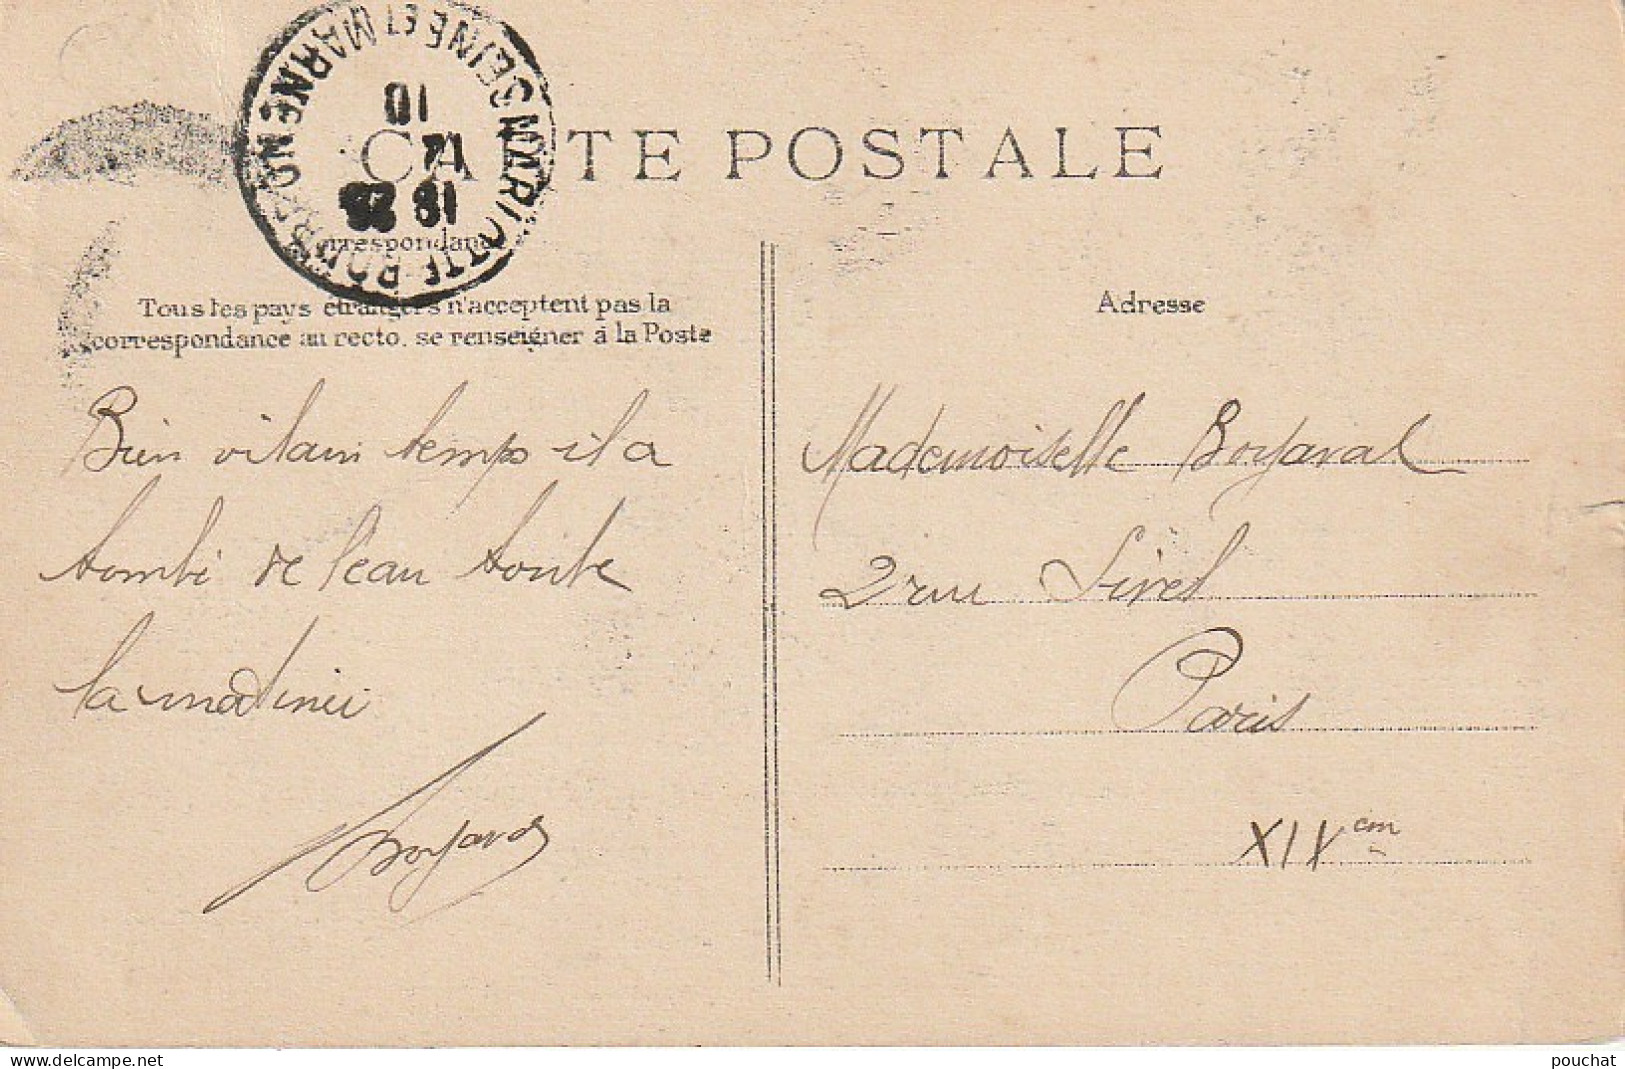 CARTE POSTALE
Correspondance
Tous les pays étrangers n'acceptent pas la
correspondance au recto, se renseigner à la Poste
Adresse
MARLOTTE-BOURRON
SEINE ET MARNE
18 25
12
10
Bien vilain temps il a
tombé de l'eau toute
la matinée
Boyaval
Mademoiselle Boyaval
2 rue Sivel
Paris
XIVem
www.delcampe.net
pouchat